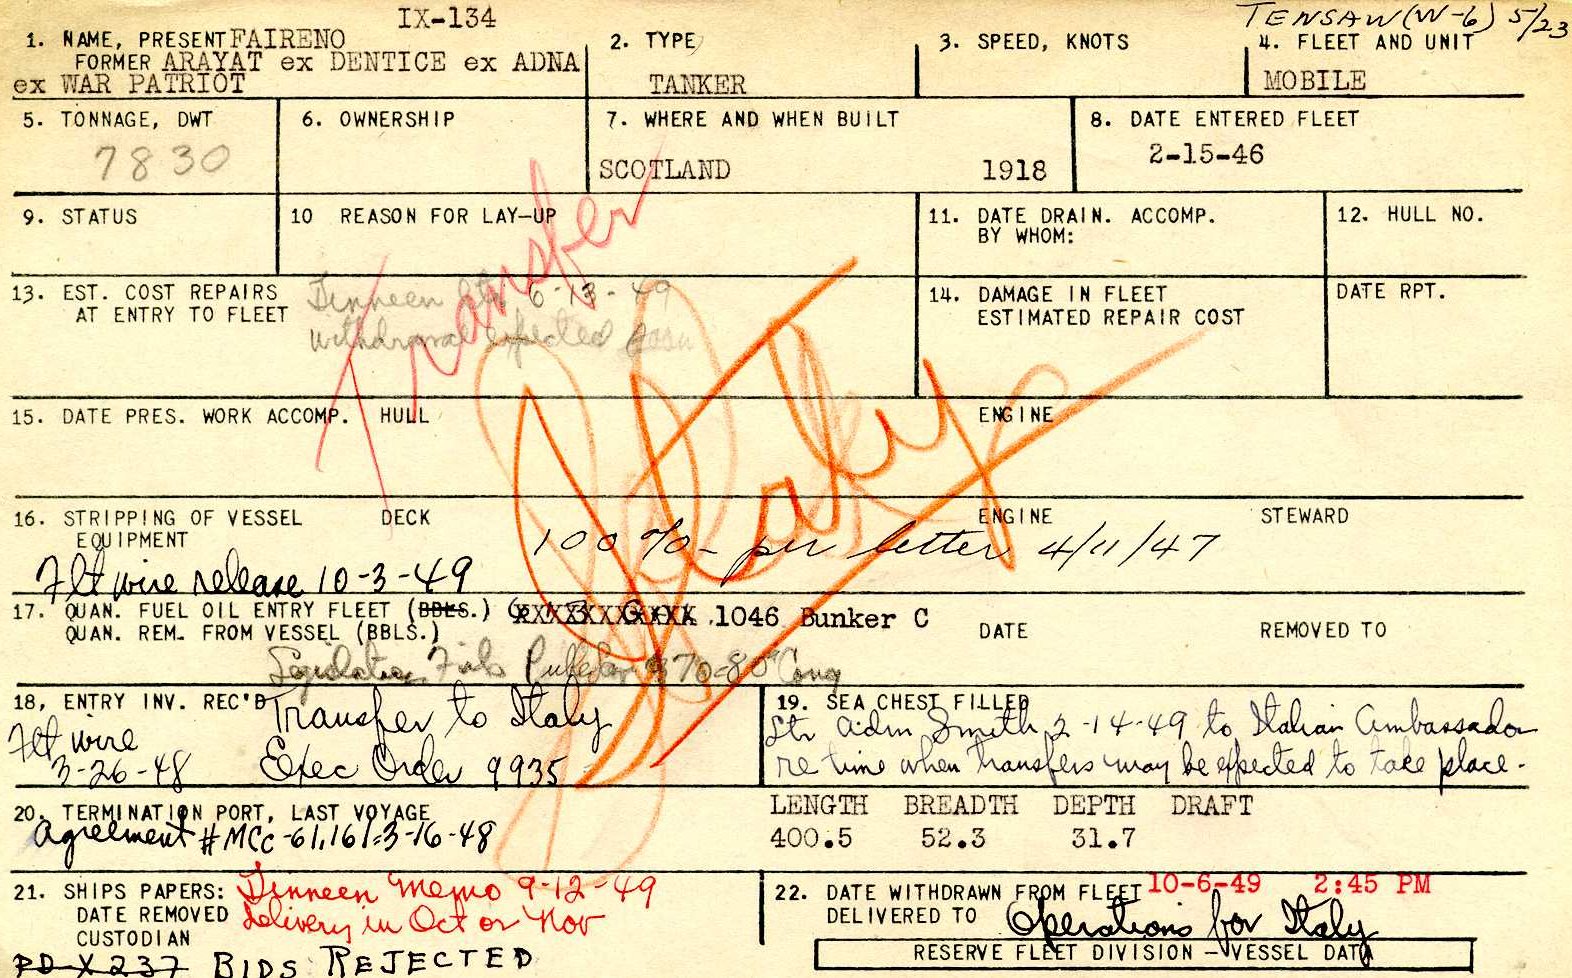 IX-134
TENSAW (W-6) 5/23
1. NAME, PRESENT FAIRENO
FORMER ARAYAT ex DENTICE ex ADNA
ex WAR PATRIOT
2. TYPE
TANKER
3. SPEED, KNOTS
4. FLEET AND UNIT
MOBILE
5. TONNAGE, DWT
7830
6. OWNERSHIP
7. WHERE AND WHEN BUILT
SCOTLAND 1918
8. DATE ENTERED FLEET
2-15-46
9. STATUS
10 REASON FOR LAY-UP
11. DATE DRAIN. ACCOMP.
BY WHOM:
12. HULL NO.
Transfer
Italy
13. EST. COST REPAIRS
AT ENTRY TO FLEET
Dinneen ltr 6-13-49
withdrawal expected soon
14. DAMAGE IN FLEET
ESTIMATED REPAIR COST
DATE RPT.
15. DATE PRES. WORK ACCOMP. HULL ENGINE
16. STRIPPING OF VESSEL DECK ENGINE STEWARD
EQUIPMENT
100% - per letter 4/11/47
Flt wire release 10-3-49
17. QUAN. FUEL OIL ENTRY FLEET (BBLS.) 1046 Bunker C
QUAN. REM. FROM VESSEL (BBLS.) DATE REMOVED TO
Legislation 70-80" Cong
18, ENTRY INV. REC'D
Transfer to Italy
Flt wire
3-26-48 Exec Order 9935
19. SEA CHEST FILLED
Ltr Adm Smith 2-14-49 to Italian Ambassador
re time when transfers may be expected to take place.
20. TERMINATION PORT, LAST VOYAGE
Agreement # MCc-61,161-3-16-48
LENGTH BREADTH DEPTH DRAFT
400.5 52.3 31.7
21. SHIPS PAPERS:
DATE REMOVED
CUSTODIAN
Dinneen Memo 9-12-49
delivery in Oct or Nov
PD-X 237 BIDS REJECTED
22. DATE WITHDRAWN FROM FLEET 10-6-49 2:45 PM
DELIVERED TO Operations for Italy
RESERVE FLEET DIVISION - VESSEL DATA